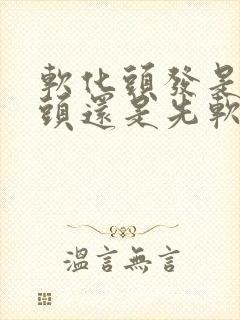 軟化頭發是
頭還是先軟
溫言無言